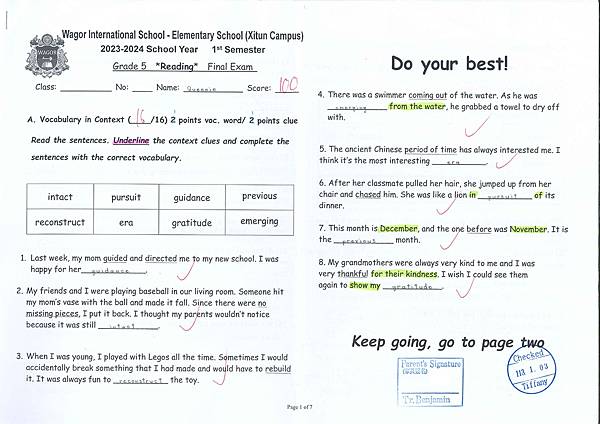 Wagor International School - Elementary School (Xitun Campus)
2023-2024 School Year 1st Semester
Grade 5 *Reading* Final Exam
Class: No: Name: Queenie Score: 100
WAGOR
A. Vocabulary in Context ( 16 /16) 2 points vac. word/ 2 points clue
Read the sentences. Underline the context clues and complete the
sentences with the correct vocabulary.
intact pursuit guidance previous
reconstruct era gratitude emerging
1. Last week, my mom guided and directed me to my new school. I was
happy for her guidance.
2. My friends and I were playing baseball in our living room. Someone hit
my mom's vase with the ball and made it fall. Since there were no
missing pieces, I put it back. I thought my parents wouldn't notice
because it was still intact.
3. When I was young, I played with Legos all the time. Sometimes I would
accidentally break something that I had made and would have to rebuild
it. It was always fun to reconstruct the toy.
Page 1 of 7
Do your best!
4. There was a swimmer coming out of the water. As he was
emerging from the water, he grabbed a towel to dry off
with.
5. The ancient Chinese period of time has always interested me. I
think it's the most interesting era.
6. After her classmate pulled her hair, she jumped up from her
chair and chased him. She was like a lion in pursuit of its
dinner.
7. This month is December, and the one before was November. It is
the previous month.
8. My grandmothers were always very kind to me and I was
very thankful for their kindness. I wish I could see them
again to show my gratitude.
Keep going, go to page two
Parent's Signature
Tr. Benjamin
Checked
113 1. 03
Tiffany